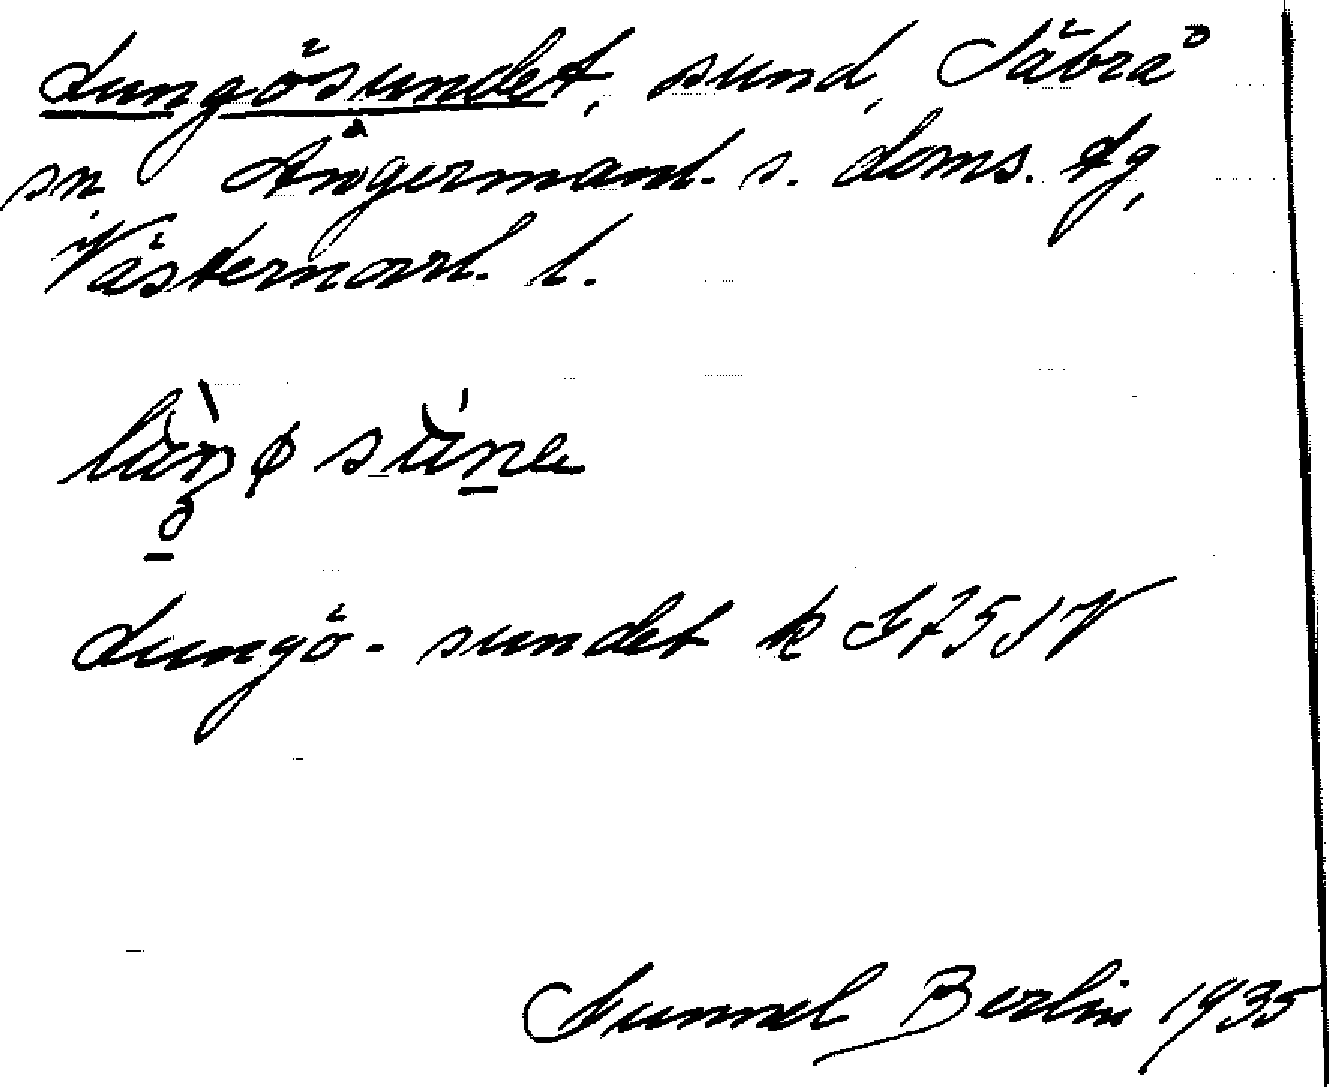 Lungösundet, sund, Säbrå
sn, Ångermanl. s. doms. tg,
Västernorrl. l.
Lungö-sundet k J751V
Gunnel Berlin 1935